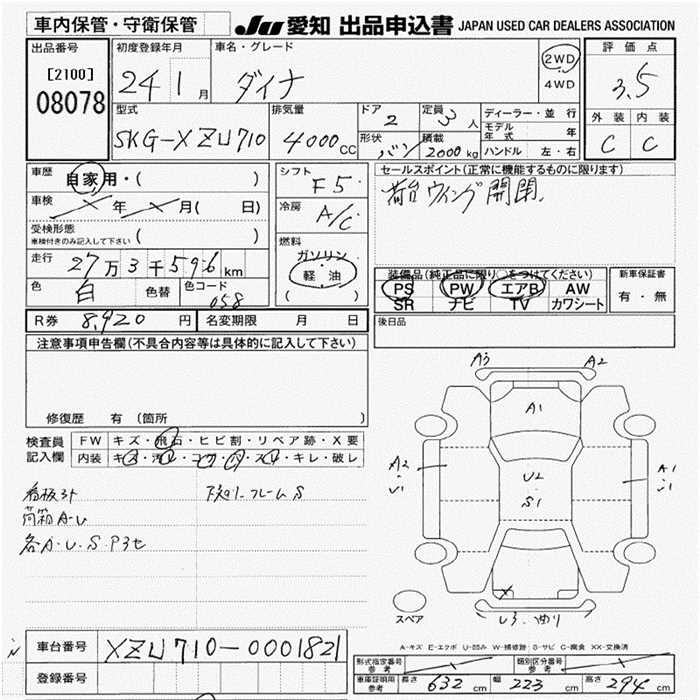 車内保管・守衛保管
JU 愛知 出品申込書 JAPAN USED CAR DEALERS ASSOCIATION
出品番号
[2100]
08078
初度登録年月
24 1月
車名・グレード
ダイナ
2WD
4WD
評価点
3.5
外装 内装
C C
型式
SKG-XZU710
排気量
4000cc
ドア 2
形状 バン
定員 3人
積載 2000kg
ディーラー・並行
モデル年式 年
ハンドル 左・右
車歴 自家用・( )
車検 年 月( 日)
受検形態
車検付きのみ記入して下さい ( )
走行 27万3千596km
色 白 色替
色コード 058
シフト F5
冷房 A/C
燃料
ガソリン
軽・油
( )
セールスポイント(正常に機能するものに限ります)
荷台ウィング開閉.
装備品(純正品に限り○をつけてください)
PS PW エアB AW
SR ナビ TV カワシート
新車保証書
有・無
R券 8,920円 名変期限 月 日
後日品
注意事項申告欄(不具合内容等は具体的に記入して下さい)
修復歴 有 (箇所 )
検査員
記入欄
FW キズ・飛石・ヒビ割・リペア跡・X要
内装 キズ・汚れ・コゲ・穴・スレ・キレ・破レ
看板3ヶ
荷箱A-U
各A・U・S・P3セ
下廻りフレームS
A3 A2
A1
A2
U1
U2
S1
A1
U1
X
U3.曲り
スペア
A-キズ E-エクボ U-凹み W-補修跡 S-サビ C-腐食 XX-交換済
車台番号 XZU710-0001821
登録番号
形式指定番号
参考
類別区分番号
参考
車庫証明用
参考
長さ 632cm 幅 223cm 高さ 294cm